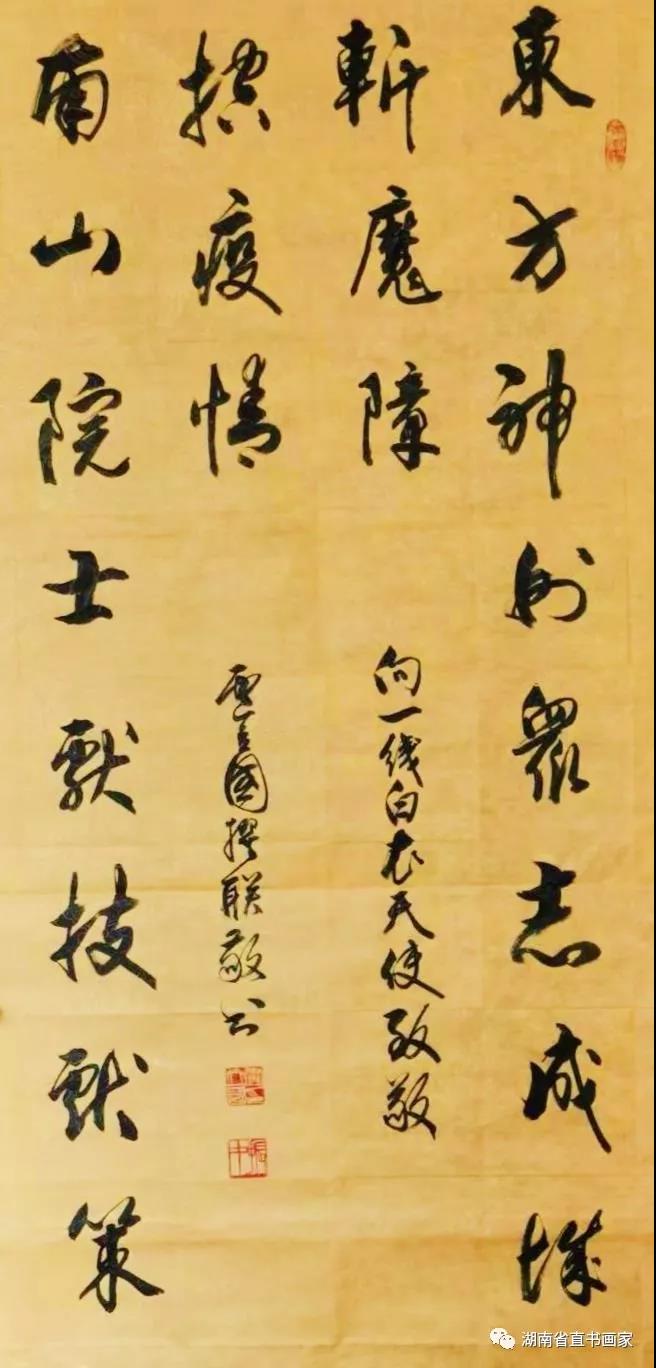 東方神州眾志成城
斬魔障
南山院士獻技獻策
控疫情
向一线白衣天使致敬
國撰联敬书
湖南省直书画家